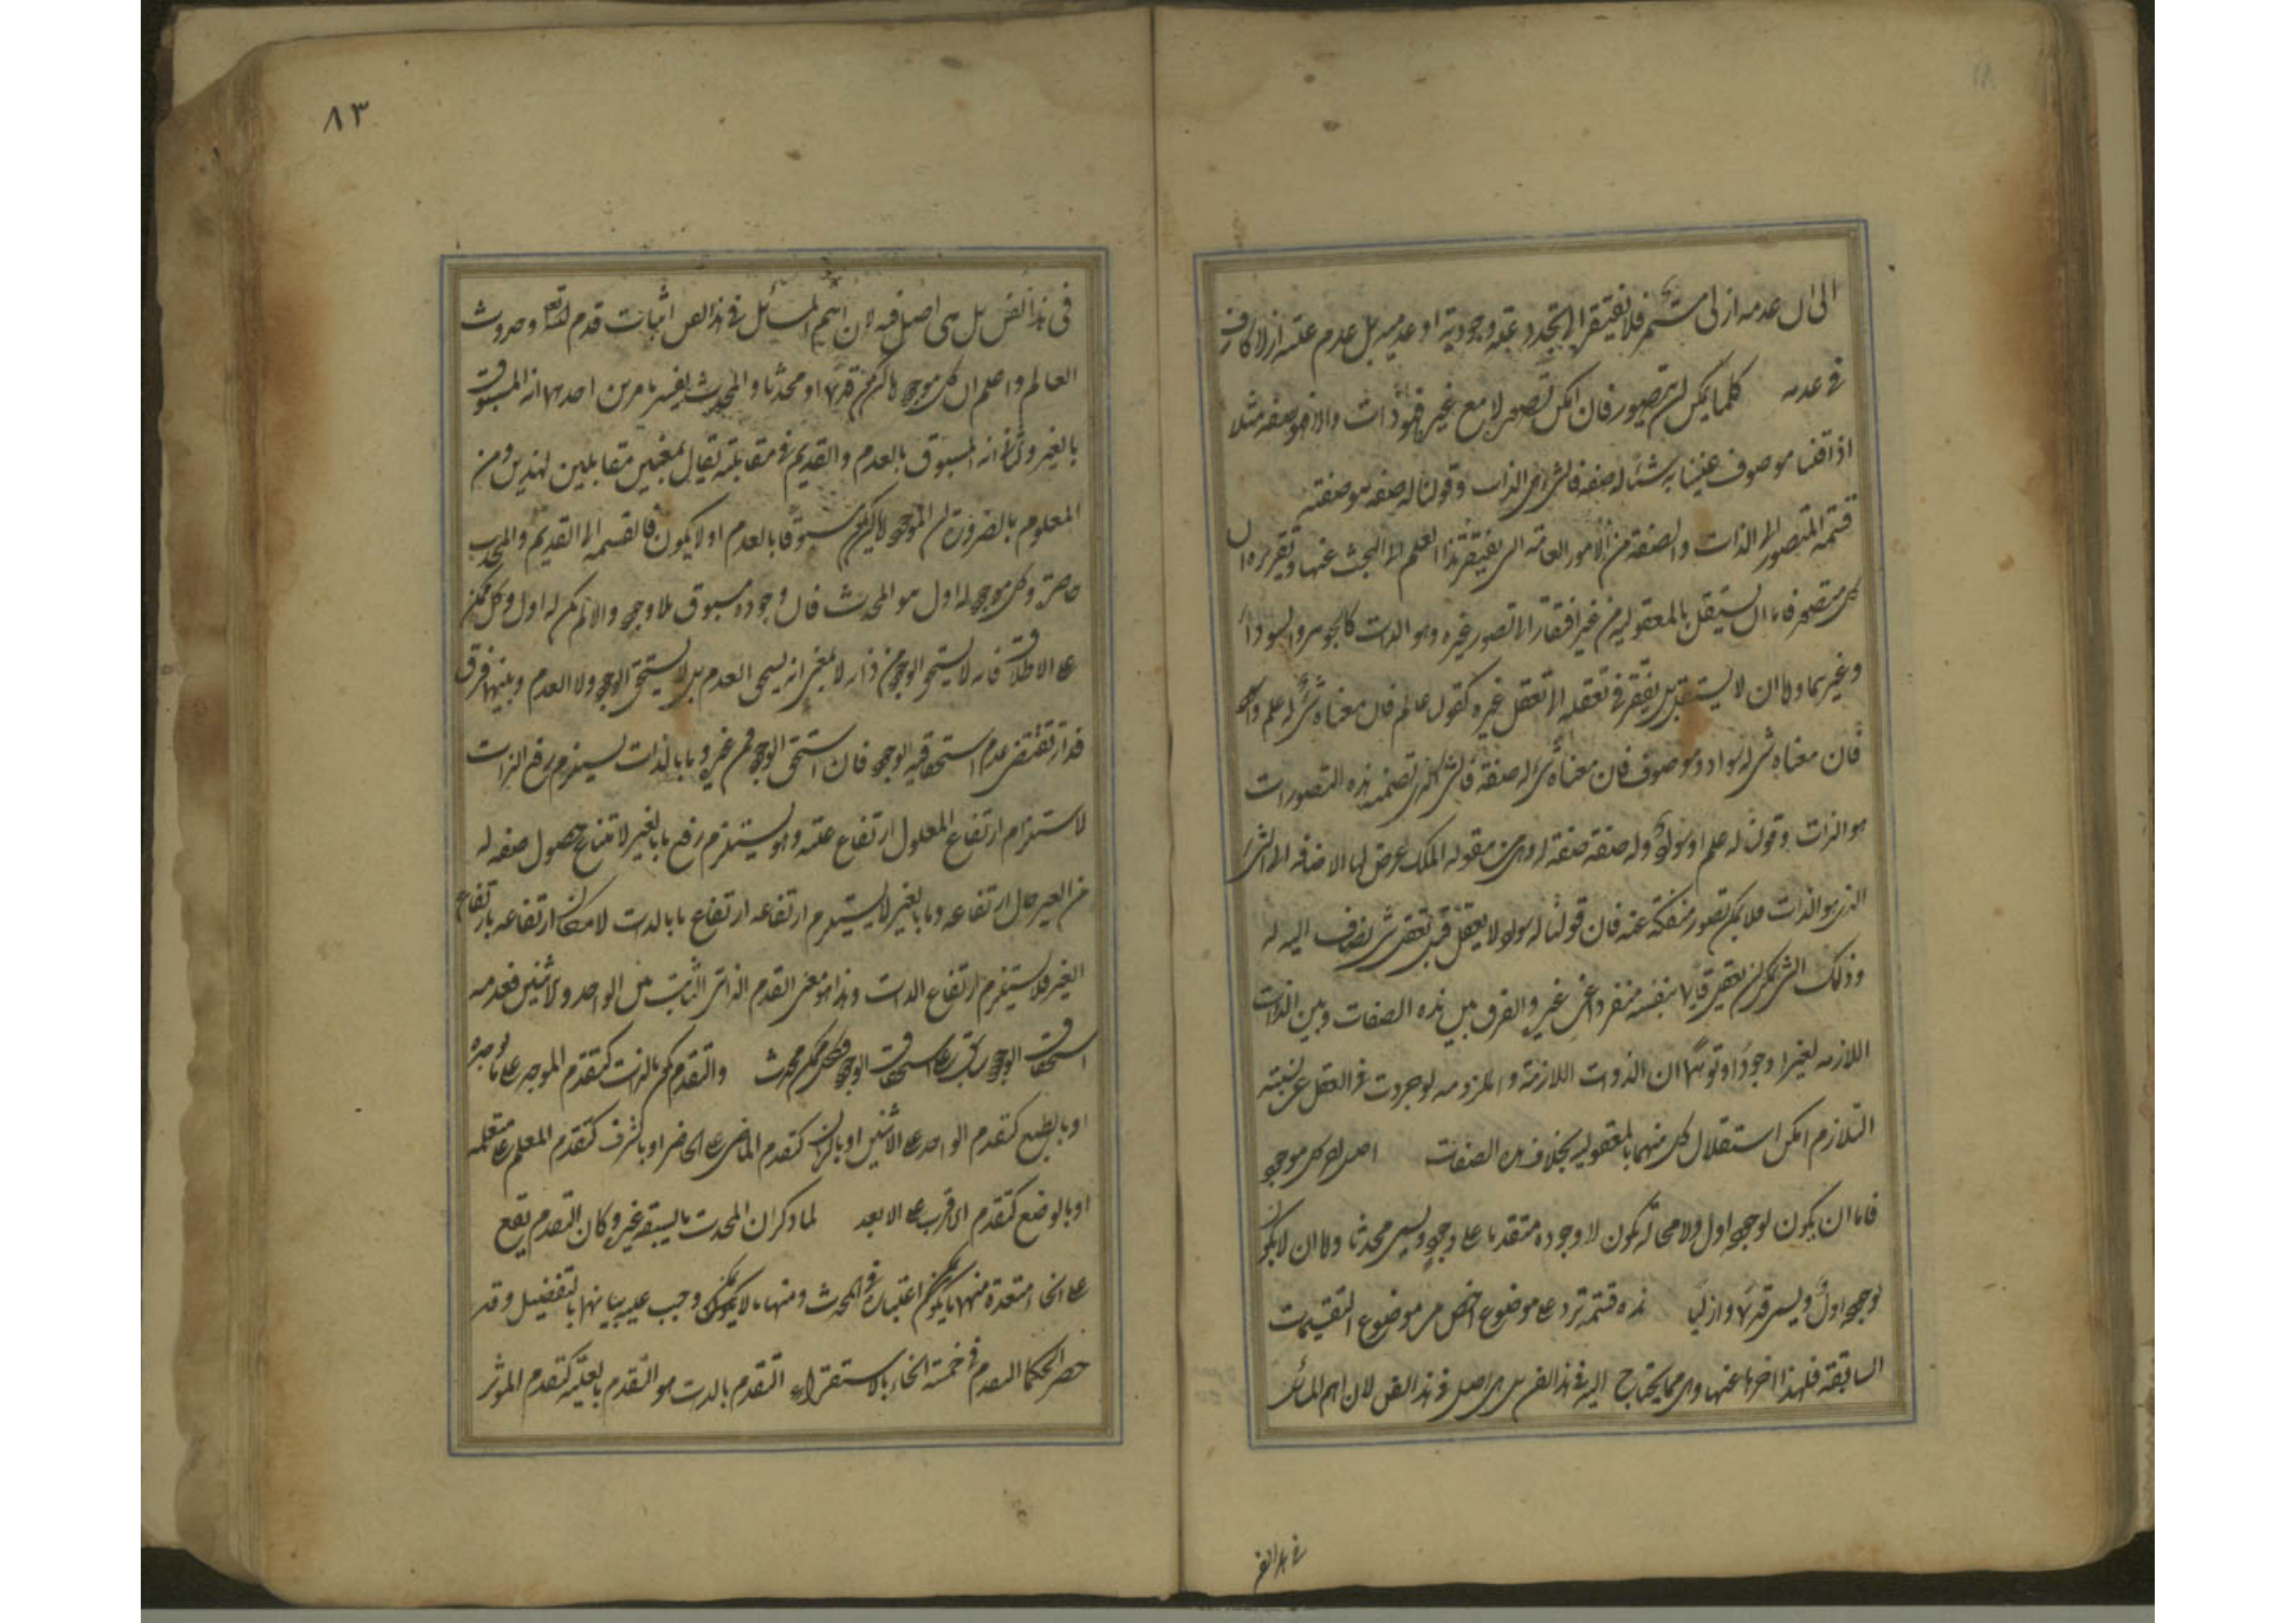 الی ان عدمه ازلی مستمر فلا یفتقر الی تجدد علة وجودیة او عدمیة بل عدم علته ازلا کاف
فی عدمه کلما یمکن ان یتصور فان امکن تصوره لا مع غیره فهو ذات والا فهو صفة مثلا
اذا قلنا موصوف عنینا به شیئا له صفة فالشیء هی الذات وقولنا له صفة هو صفته
قسمة المتصور الی الذات والصفة من الامور العامة التی یفتقر هذا العلم الی البحث عنها وتقریره ان
کل متصور فاما ان یستقل بالمعقولیة من غیر افتقار الی تصور غیره وهو الذات کالجوهر والسواد
وغیرهما واما ان لا یستقل بل یفتقر فی تعقله الی تعقل غیره کقول عالم فان معناه شیء له علم واسود
فان معناه شیء له سواد وموصوف فان معناه شیء له صفة فالشیء الذی تضمنه هذه التصورات
هو الذات وقولنا له علم او سواد وله صفة صفة له وهی من مقولة الملک عرض لها الاضافة الی الشیء
الذی هو الذات فلا یمکن تصور منفکة عنه فان قولنا له سواد لا یعقل قبل تعقل شیء یضاف الیه له
وذلک الشیء یمکن ان یعقل قایما بنفسه منفردا عن غیره والفرق بین هذه الصفات وبین الذات
اللازمة لغیرها وجودا وتوهما ان الذوات اللازمة والملزومة لو جردت فی العقل عن نسبة
التلازم امکن استقلال کل منهما بالمعقولیة بخلاف هذه الصفات اصل کل موجود
فاما ان یکون لوجوده اول ولا محالة یکون لا وجوده متقدما علی وجوده ویسمی محدثا واما ان لا یکون
لوجوده اول ویسمی قدیما وازلیا هذه قسمة ترد علی موضوع اخص من موضوع التقسیمات
السابقة فلهذا اخرها عنها وهی مما یحتاج الیه فی هذا الفن بل هی اصل فی هذا الفن لان اهم المسائل
فی هذا الفن
۸۳
فی هذا الفن بل هی اصل فیه لان اهم المسائل فی هذا الفن اثبات قدم الله تعالی وحدوث
العالم واعلم ان کل موجود اما ان یکون قدیما او محدثا والمحدث یفسر بامرین احدهما انه المسبوق
بالغیر وثانیهما انه المسبوق بالعدم والقدیم فی مقابلته یقال لمعنیین مقابلین لهذین ومن
المعلوم بالضرورة ان الموجود اما ان یکون مسبوقا بالعدم او لا یکون فالقسمة الی القدیم والمحدث
حاصرة وکل موجود له اول هو المحدث فان وجوده مسبوق بلا وجوده والا لم یکن له اول وکل ممکن
علی الاطلاق فانه لا یستحق الوجود من ذاته لا بمعنی انه یستحق العدم بل لا یستحق الوجود ولا العدم وبینهما فرق
فذاته تقتضی عدم استحقاقیة الوجود فان استحق الوجود فمن غیره وما بالذات یستلزم رفع الذات
لاستلزام ارتفاع المعلول ارتفاع علته وهو یستلزم رفع ما بالغیر لامتناع حصول صفة له
من الغیر حال ارتفاعه وما بالغیر لا یستلزم ارتفاعه ارتفاع ما بالذات لامکان ارتفاعه بارتفاع
الغیر فلا یستلزم ارتفاع الذات وهذا هو معنی التقدم الذاتی الثابت بین الواحد والاثنین فعدم
استحقاق الوجود سابق علی استحقاق الوجود فکل ممکن محدث والتقدم یکون بالذات کتقدم الموجد علی ما یوجده
او بالطبع کتقدم الواحد علی الاثنین او بالزمان کتقدم الماضی علی الحاضر او بالشرف کتقدم المعلم علی متعلمه
او بالوضع کتقدم الاقرب علی الابعد لما ذکر ان المحدث ما یسبقه غیره وکان التقدم یقع
علی انحاء متعددة منها ما یمکن اعتباره فی المحدث ومنها ما لا یمکن وجب علیه بیانها بالتفصیل وقد
حصر الحکما التقدم فی خمسة انحاء بالاستقراء التقدم بالذات هو التقدم بالعلیة کتقدم الموثر